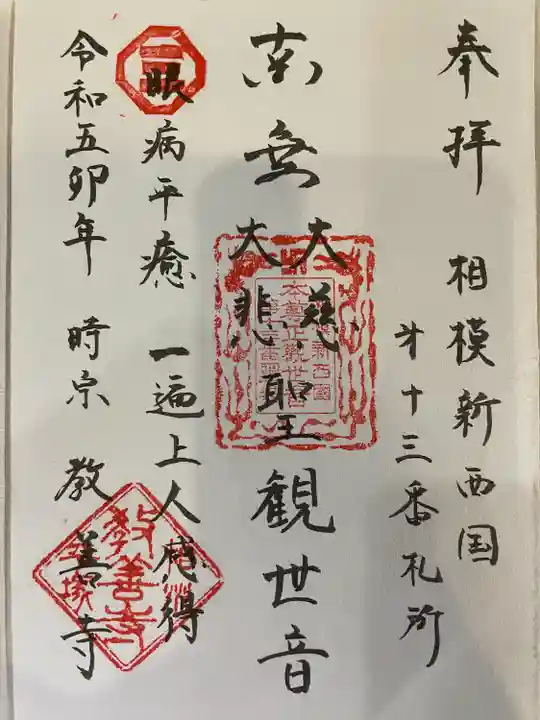 奉拝 相模新西国
才十三番札所
南無大慈大悲聖観世音
眼病平癒 一遍上人感得
令和五卯年 時宗 教善寺
教善寺